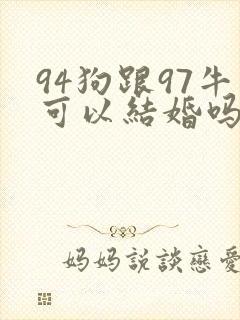 94狗跟97牛
可以結婚吗
妈妈説談戀愛